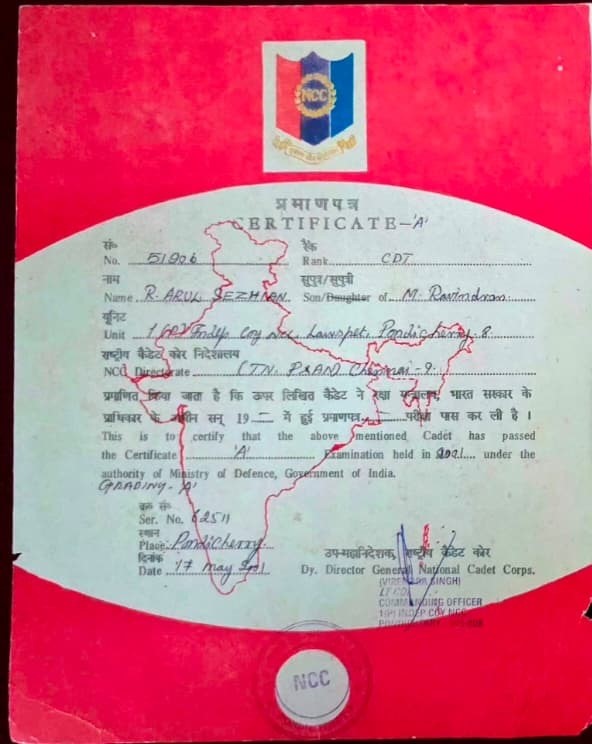 NCC
प्रमाणपत्र
CERTIFICATE-'A'
सं०
No. 51906
रैंक
Rank CDT
नाम
Name R. ARUL SEZHIAN
सुपुत्र/सुपुत्री
Son/Daughter of M. Ravindran
यूनिट
Unit 1 (P) Indep Coy NCC, Lawspet, Pondicherry-8
राष्ट्रीय कैडेट कोर निदेशालय
NCC Directorate (TN, P&AN) Chennai-9
प्रमाणित किया जाता है कि ऊपर लिखित कैडेट ने रक्षा मन्त्रालय, भारत सरकार के
प्राधिकार के अधीन सन् 19 में हुई प्रमाणपत्र परीक्षा पास कर ली है ।
This is to certify that the above mentioned Cadet has passed
the Certificate 'A' Examination held in 2001 under the
authority of Ministry of Defence, Government of India.
GRADING-'A'
क्रम सं०
Ser. No. 62511
स्थान
Place: Pondicherry
दिनांक
Date 17 May 2001
उप-महानिदेशक, राष्ट्रीय कैडेट कोर
Dy. Director General National Cadet Corps.
(VIRENDRA SINGH)
LT COL
COMMANDING OFFICER
INDEP COY NCC
NCC